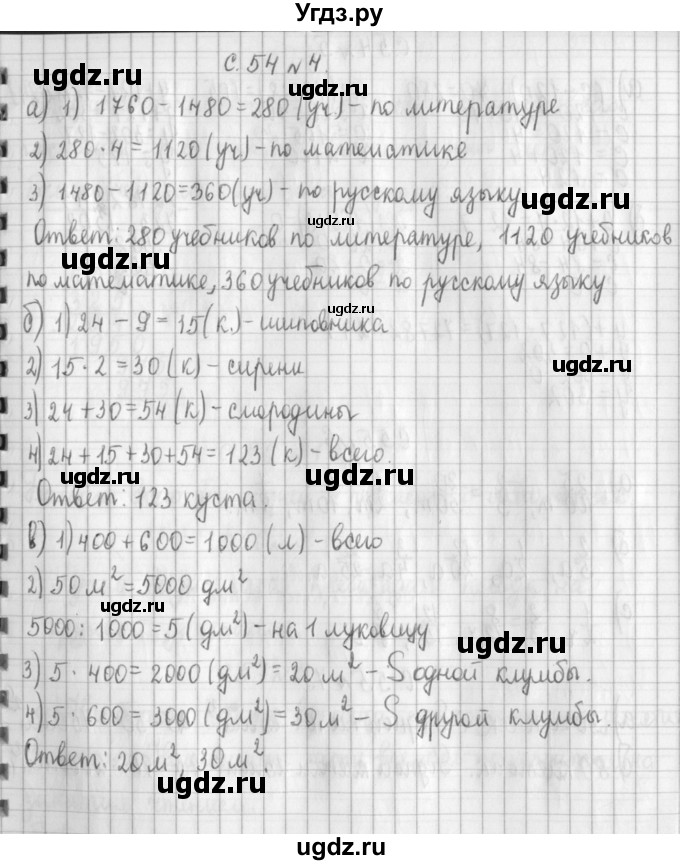 Угдз.ру
с. 54 № 4.
ugdz.ru ugdz.ru
а) 1) 1760 - 1480 = 280 (уч) - по литературе
ugdz.ru
2) 280 · 4 = 1120 (уч) - по математике
3) 1480 - 1120 = 360 (уч) - по русскому языку
ugdz.ru
ugdz.ru
Ответ: 280 учебников по литературе, 1120 учебников
ugdz.ru
по математике, 360 учебников по русскому языку
ugdz.ru
б) 1) 24 - 9 = 15 (к.) - шиповника
2) 15 · 2 = 30 (к) - сирени
ugdz.ru
ugdz.ru
3) 24 + 30 = 54 (к) - смородины
4) 24 + 15 + 30 + 54 = 123 (к) - всего.
ugdz.ru ugdz.ru
Ответ: 123 куста.
ugdz.ru
в) 1) 400 + 600 = 1000 (л) - всего
2) 50 м² = 5000 дм²
ugdz.ru
5000 : 1000 = 5 (дм²) - на 1 луковицу
ugdz.ru
3) 5 · 400 = 2000 (дм²) = 20 м² - S одной клумбы.
ugdz.ru
4) 5 · 600 = 3000 (дм²) = 30 м² - S другой клумбы.
ugdz.ru
Ответ: 20 м², 30 м².
ugdz.ru
ugdz.ru
ugdz.ru